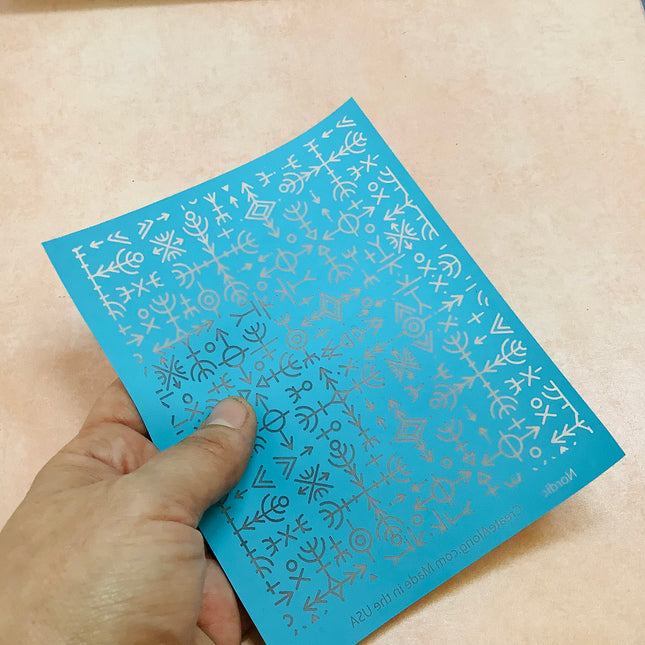 Nordic
©CreateAlong.com Made in the USA